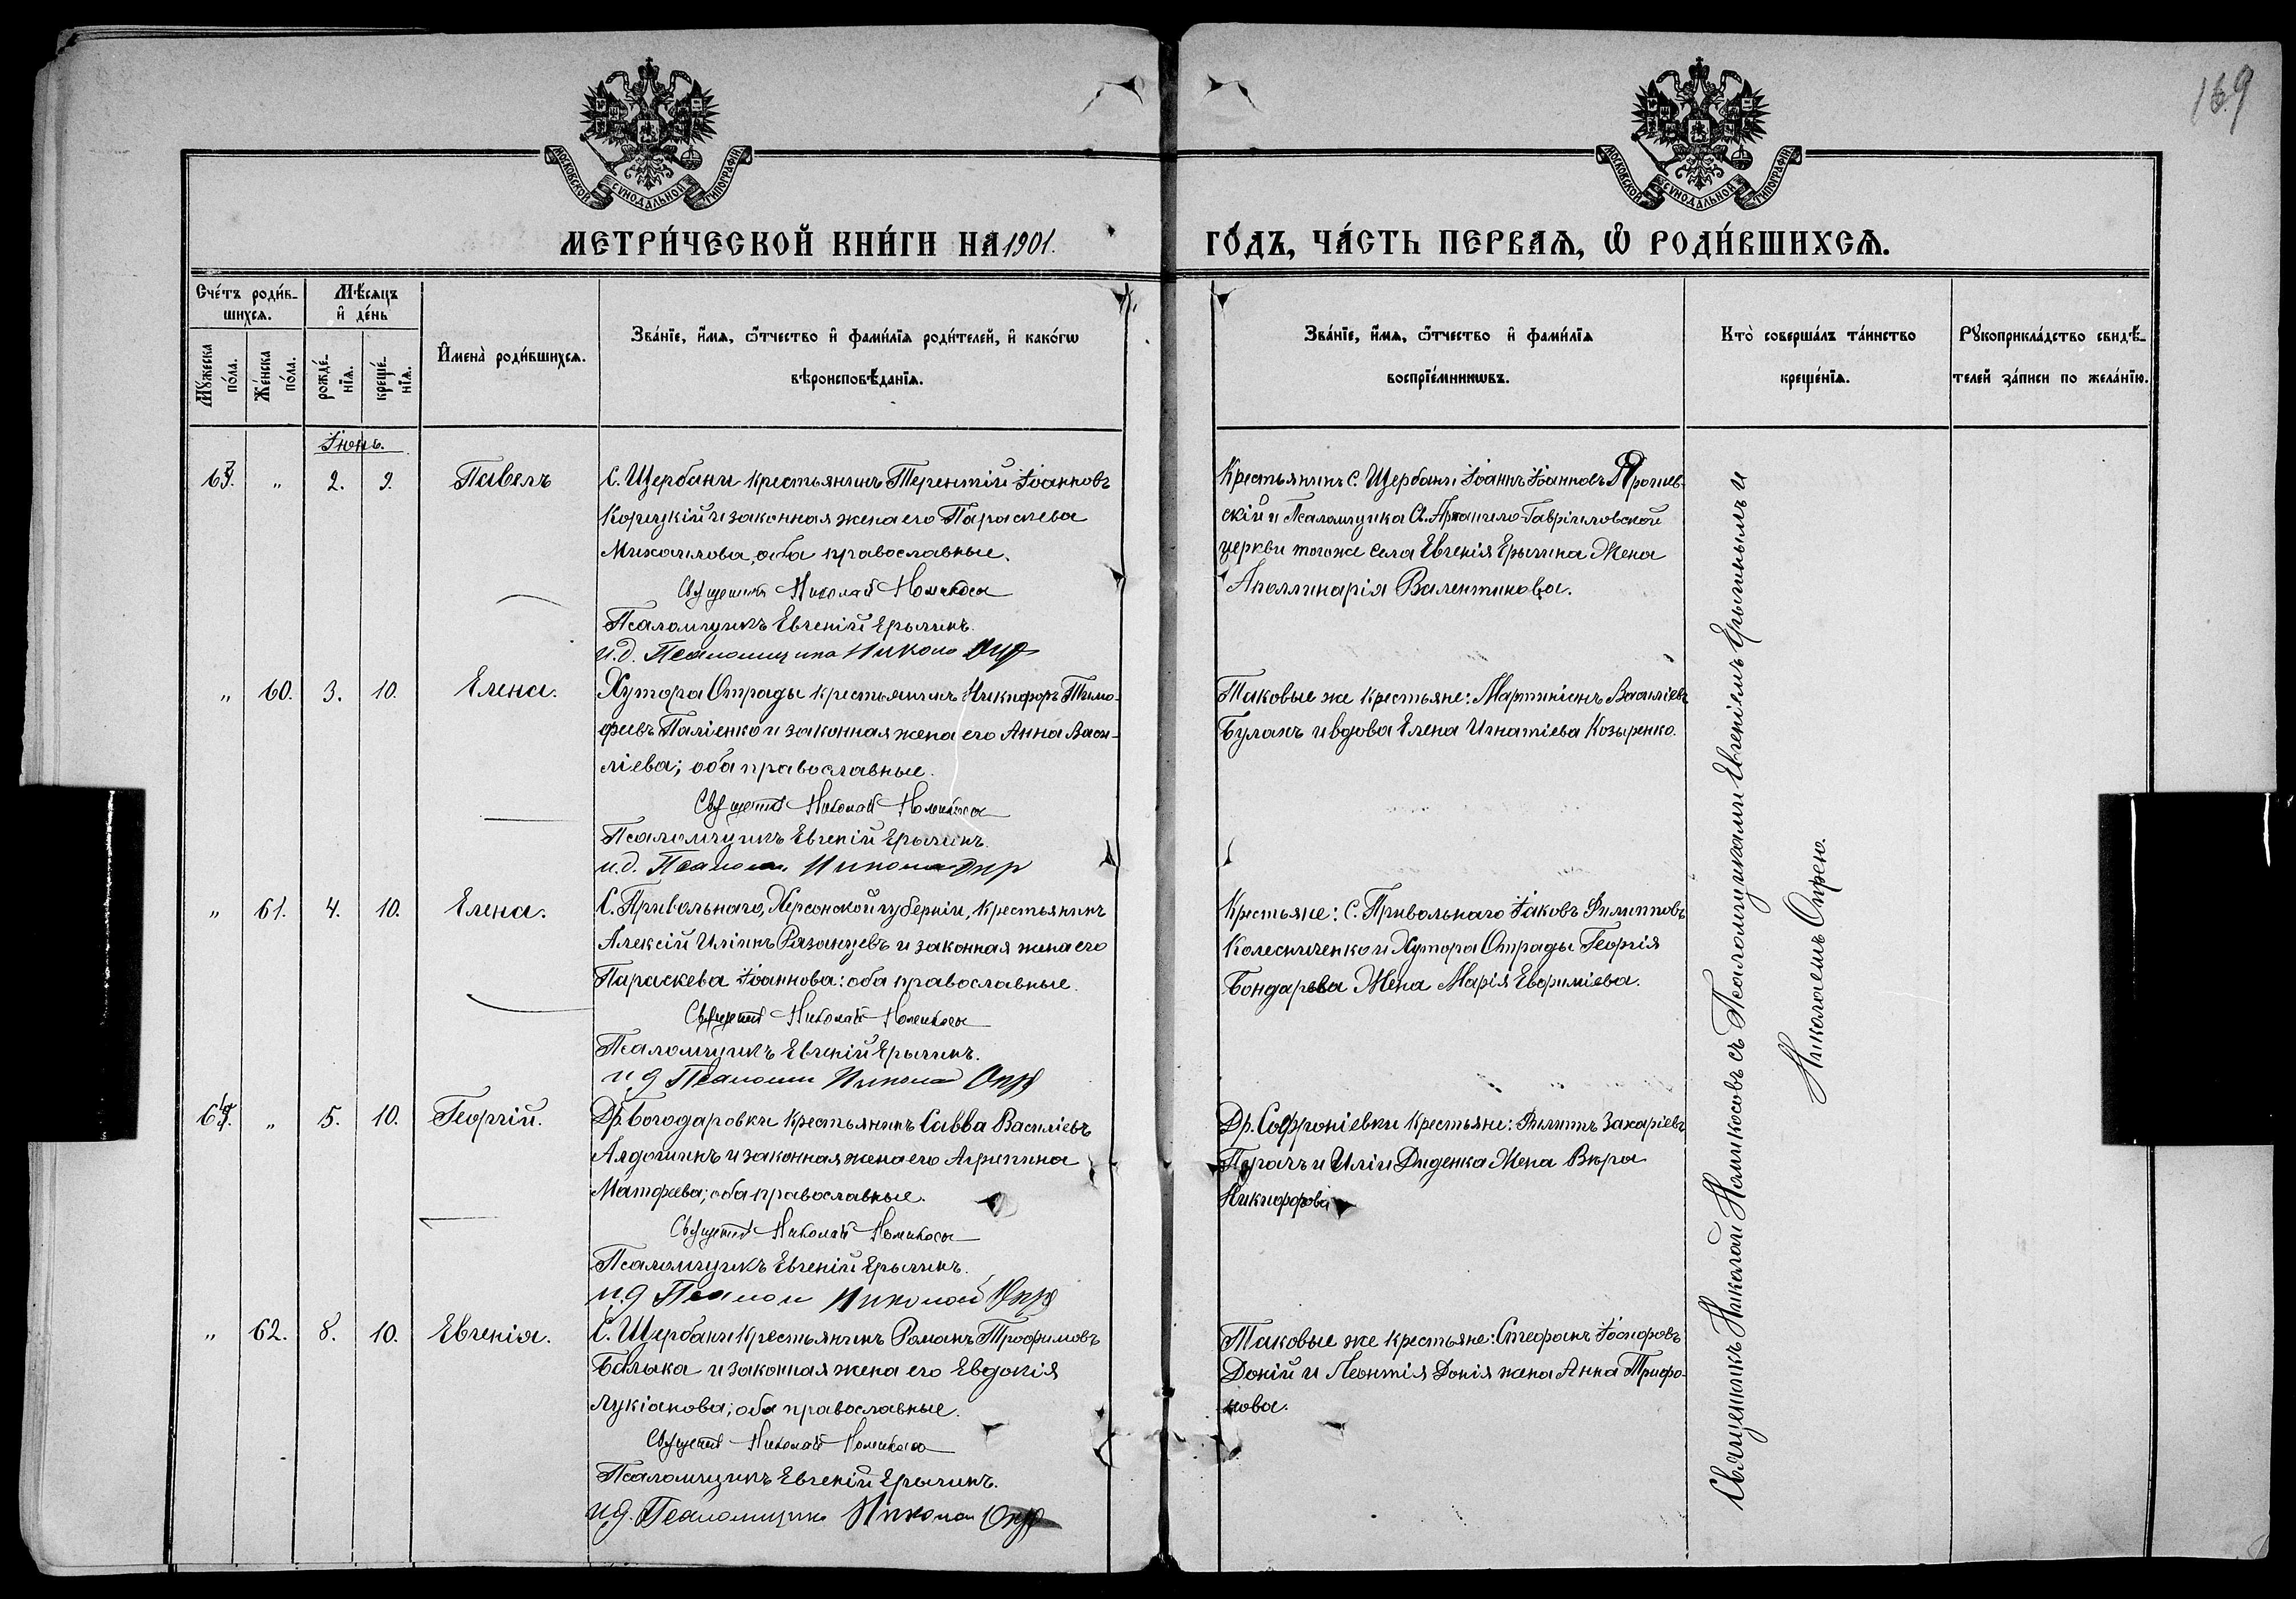 169
МОСКОВСКОЙ СѴНОДАЛЬНОЙ ТИПОГРАФІИ
МОСКОВСКОЙ СѴНОДАЛЬНОЙ ТИПОГРАФІИ
МЕТРИ́ЧЕСКОЙ КНИ́ГИ НА 1901.
ГО́ДЪ, ЧА́СТЬ ПЕРВАЯ, Ѡ҆ РОДИ́ВШИХСЯ.
Сче́тъ роди́в-
шихся.
Мѣ́сяцъ
и҆ де́нь
Мꙋ́жеска
по́ла.
Же́нска
по́ла.
рожде́-
нїѧ.
креще́-
нїѧ.
И҆мена̀ роди́вшихся.
Зва́нїе, и҆́мѧ, ѻ҆́тчество и҆ фами́лїѧ роди́телей, и҆ како́гѡ
вѣроисповѣ́данїѧ.
Зва́нїе, и҆́мѧ, ѻ҆́тчество и҆ фами́лїѧ
воспрїе́мникѡвъ.
Кто̀ соверша́лъ та́инство
креще́нїѧ.
Рꙋкоприкла́дство свидѣ́-
телей за́писи по жела́нїю.
Іюнь.
63. " 2. 9. Павелъ
С. Щербани крестьянинъ Терентій Іоанновъ
Корицкій и законная жена его Параскева
Михаилова, оба православные.
Священникъ Николай Номикосъ
Псаломщикъ Евгеній Ерыгинъ.
и.д. Псаломщика Николай
Крестьянинъ С. Щербани Іоаннъ Іоанновъ
скій и Псаломщика Св. Архангело-Гавріиловской
церкви тогоже села Евгенія Ерыгина Жена
Аполлинарія Валентинова.
" 60. 3. 10. Елена.
Хутора Отрады крестьянинъ Никифоръ Тимо-
феевъ Паліенко и законная жена его Анна Васи-
ліева; оба православные.
Священникъ Николай Номикосъ
Псаломщикъ Евгеній Ерыгинъ.
и.д. Псалом. Николай
Таковые же крестьяне: Мартиніанъ Василіевъ
Буланъ и вдова Елена Игнатіева Козыренко.
" 61. 4. 10. Елена.
С. Привольнаго, Херсонской губерніи, крестьянинъ
Алексій Иліинъ Рязанцевъ и законная жена его
Параскева Іоаннова: оба православные.
Священникъ Николай Номикосъ
Псаломщикъ Евгеній Ерыгинъ.
и д Псаломщ Николай
Крестьяне: С. Привольнаго Іаковъ Филипповъ
Колесниченко и Хутора Отрады Георгія
Бондарева Жена Марія Евфиміева.
64. " 5. 10. Георгій.
Др. Богодаровки крестьянинъ Савва Василіевъ
Алдошинъ и законная жена его Агрипина
Матфеева; оба православные.
Священникъ Николай Номикосъ
Псаломщикъ Евгеній Ерыгинъ.
и.д Псалом Николай
Др. Софроніевки крестьяне: Филиппъ Захаріевъ
и Иліи Диденка Жена Вѣра
Никифорова
" 62. 8. 10. Евгенія.
С. Щербани крестьянинъ Романъ Трофимовъ
Балыка и законная жена его Евдокія
Лукіанова; оба православные.
Священникъ Николай Номикосъ
Псаломщикъ Евгеній Ерыгинъ.
и.д. Псаломщик Николай
Таковые же крестьяне: Стефанъ Іосифовъ
Доній и Леонтія Донія жена Анна Трифо-
нова.
Священникъ Николай Номикосовъ съ Псаломщиками Евгеніемъ Ерыгинымъ и
Николаемъ Опрею.